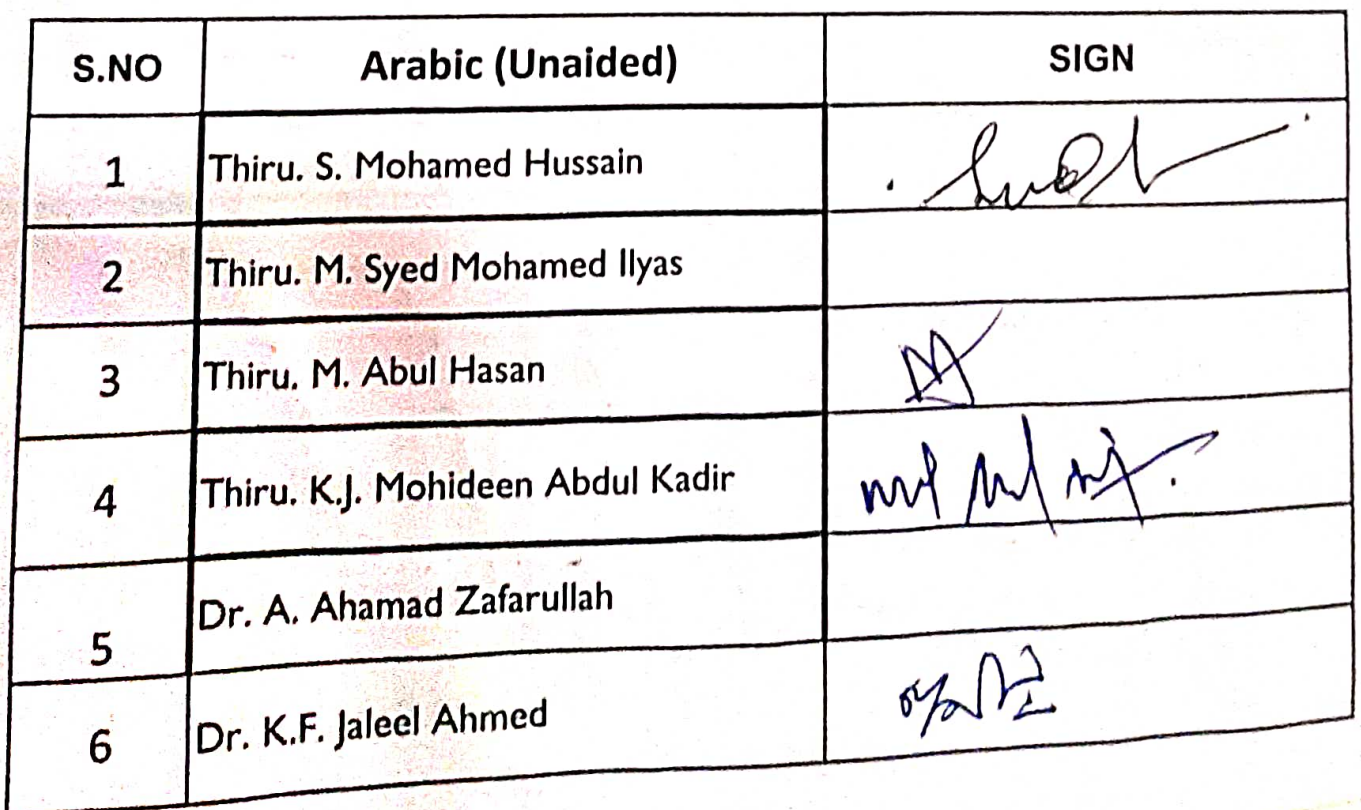 S.NO Arabic (Unaided) SIGN
1 Thiru. S. Mohamed Hussain
2 Thiru. M. Syed Mohamed Ilyas
3 Thiru. M. Abul Hasan
4 Thiru. K.J. Mohideen Abdul Kadir
5 Dr. A. Ahamad Zafarullah
6 Dr. K.F. Jaleel Ahmed